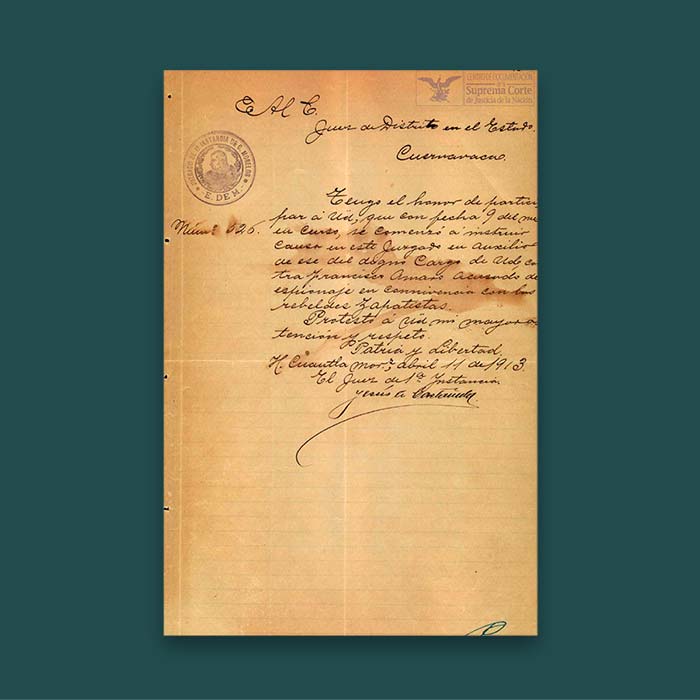 CENTRO DE DOCUMENTACIÓN
DE LA
Suprema Corte
de Justicia de la Nación
Al C.
Juez de Distrito en el Estado.
Cuernavaca.
JUZGADO DE 1ª INSTANCIA DE C. MORELOS
E. DE M.
Núm. 526.
Tengo el honor de partici
par á Ud, que con fecha 9 del mes
en curso, se comenzó á instruir
causa en este Juzgado en auxilio
de ese del digno Cargo de Ud con
tra Francisco Amaro acusado de
espionaje en connivencia con los
rebeldes Zapatistas.
Protesto á Ud mi mayor a
tención y respeto.
Patria y Libertad.
H. Cuautla Mor. abril 11 de 1913.
El Juez de 1ª Instancia.
Jesús A. Castañeda